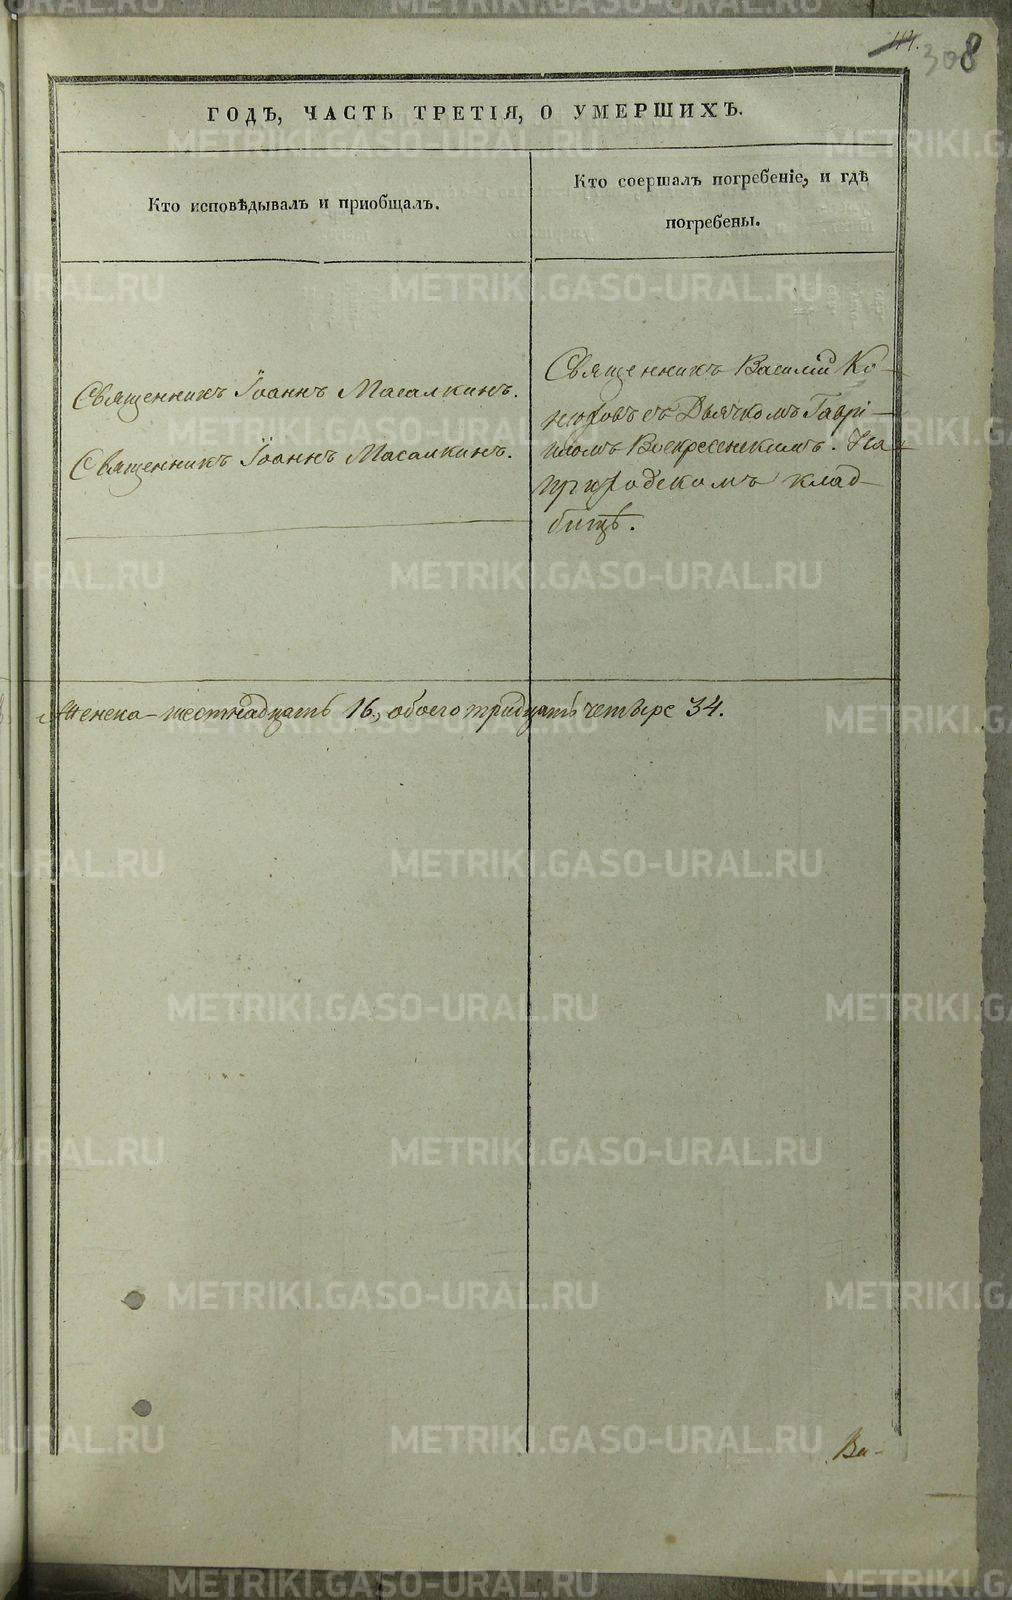 114.
308
ГОДЪ, ЧАСТЬ ТРЕТІЯ, О УМЕРШИХЪ.
Кто исповѣдывалъ и приобщалъ.
Кто соершалъ погребеніе, и гдѣ
погребены.
Священникъ Іоаннъ Масалкинъ.
Священникъ Іоаннъ Масалкинъ.
Священникъ Василій Ко-
нюховъ съ Дьячкомъ Гаврі-
иломъ Воскресенскимъ. На
пригодскомъ клад-
бищѣ.
Женска – шестнадцать 16, обоего тридцать четыре 34.
Ва-
METRIKI.GASO-URAL.RU